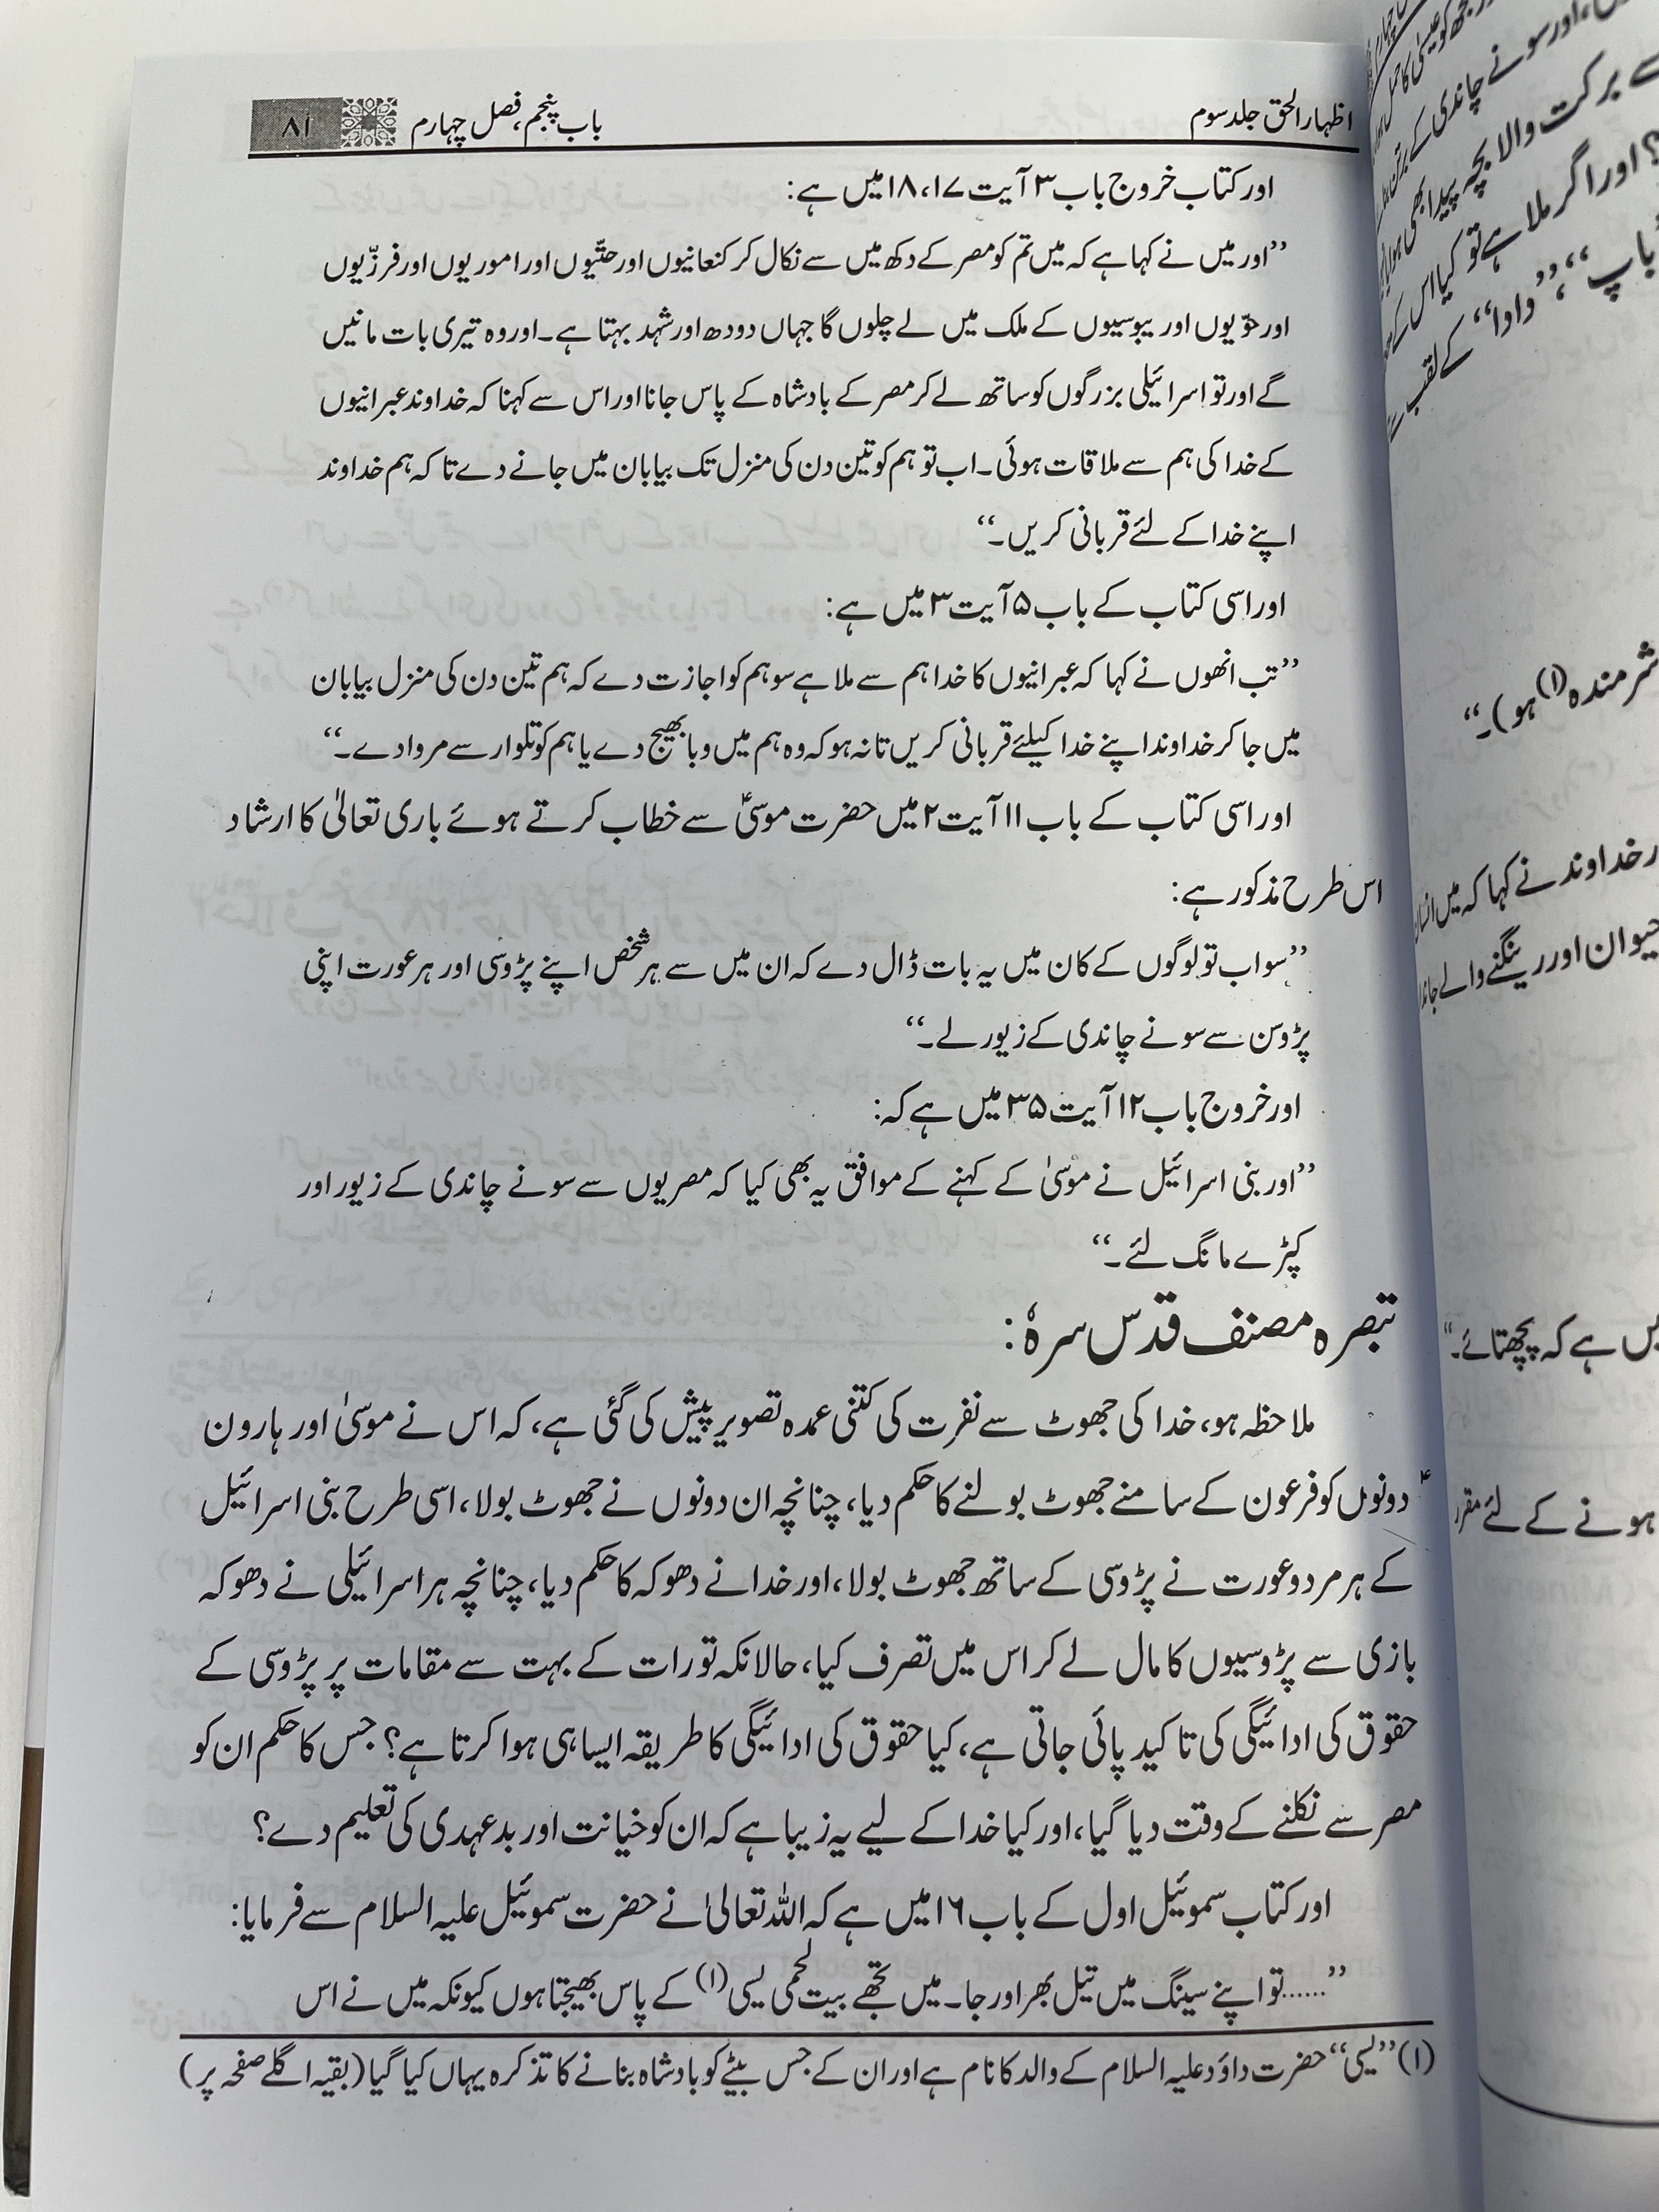 اظہار الحق جلد سوم
باب پنجم، فصل چہارم
۸۱
اور کتاب خروج باب ۳ آیت ۱۷، ۱۸ میں ہے:
”اور میں نے کہا ہے کہ میں تم کو مصر کے دکھ میں سے نکال کر کنعانیوں اور حتّیوں اور اموریوں اور فرزّیوں
اور حوّیوں اور یبوسیوں کے ملک میں لے چلوں گا جہاں دودھ اور شہد بہتا ہے۔ اور وہ تیری بات مانیں
گے اور تو اسرائیلی بزرگوں کو ساتھ لے کر مصر کے بادشاہ کے پاس جانا اور اس سے کہنا کہ خداوند عبرانیوں
کے خدا کی ہم سے ملاقات ہوئی۔ اب تو ہم کو تین دن کی منزل تک بیابان میں جانے دے تا کہ ہم خداوند
اپنے خدا کے لئے قربانی کریں۔“
اور اسی کتاب کے باب ۵ آیت ۳ میں ہے:
”تب انھوں نے کہا کہ عبرانیوں کا خدا ہم سے ملا ہے سو ہم کو اجازت دے کہ ہم تین دن کی منزل بیابان
میں جا کر خداوند اپنے خدا کیلئے قربانی کریں تا نہ ہو کہ وہ ہم میں وبا بھیج دے یا ہم کو تلوار سے مروا دے۔“
اور اسی کتاب کے باب ۱۱ آیت ۲ میں حضرت موسیٰؑ سے خطاب کرتے ہوئے باری تعالیٰ کا ارشاد
اس طرح مذکور ہے:
”سو اب تو لوگوں کے کان میں یہ بات ڈال دے کہ ان میں سے ہر شخص اپنے پڑوسی اور ہر عورت اپنی
پڑوسن سے سونے چاندی کے زیور لے۔“
اور خروج باب ۱۲ آیت ۳۵ میں ہے کہ:
”اور بنی اسرائیل نے موسیٰ کے کہنے کے موافق یہ بھی کیا کہ مصریوں سے سونے چاندی کے زیور اور
کپڑے مانگ لئے۔“
تبصرہ مصنف قدس سرہٗ:
ملاحظہ ہو، خدا کی جھوٹ سے نفرت کی کتنی عمدہ تصویر پیش کی گئی ہے، کہ اس نے موسیٰ اور ہارون
دونوں کو فرعون کے سامنے جھوٹ بولنے کا حکم دیا، چنانچہ ان دونوں نے جھوٹ بولا، اسی طرح بنی اسرائیل
کے ہر مرد و عورت نے پڑوسی کے ساتھ جھوٹ بولا، اور خدا نے دھوکہ کا حکم دیا، چنانچہ ہر اسرائیلی نے دھوکہ
بازی سے پڑوسیوں کا مال لے کر اس میں تصرف کیا، حالانکہ تورات کے بہت سے مقامات پر پڑوسی کے
حقوق کی ادائیگی کی تاکید پائی جاتی ہے، کیا حقوق کی ادائیگی کا طریقہ ایسا ہی ہوا کرتا ہے؟ جس کا حکم ان کو
مصر سے نکلنے کے وقت دیا گیا، اور کیا خدا کے لیے یہ زیبا ہے کہ ان کو خیانت اور بدعہدی کی تعلیم دے؟
اور کتاب سموئیل اول کے باب ۱۶ میں ہے کہ اللہ تعالیٰ نے حضرت سموئیل علیہ السلام سے فرمایا:
”......تو اپنے سینگ میں تیل بھر اور جا۔ میں تجھے بیت لحمی یسی(۱) کے پاس بھیجتا ہوں کیونکہ میں نے اس
(۱) ”یسی“ حضرت داؤد علیہ السلام کے والد کا نام ہے اور ان کے جس بیٹے کو بادشاہ بنانے کا تذکرہ یہاں کیا گیا (بقیہ اگلے صفحہ پر)
اور سونے چاندی کے برتن
برکت والا بچہ پیدا بھی ہوا
؟ اور اگر ملا ہے تو کیا اس کے
باپ“، ”دادا“ کے لقب سے
شرمندہ(۱) ہو)۔“
خداوند نے کہا کہ میں انسان
حیوان اور رینگنے والے
ہے کہ پچھتائے۔“
ہونے کے لئے مقرر